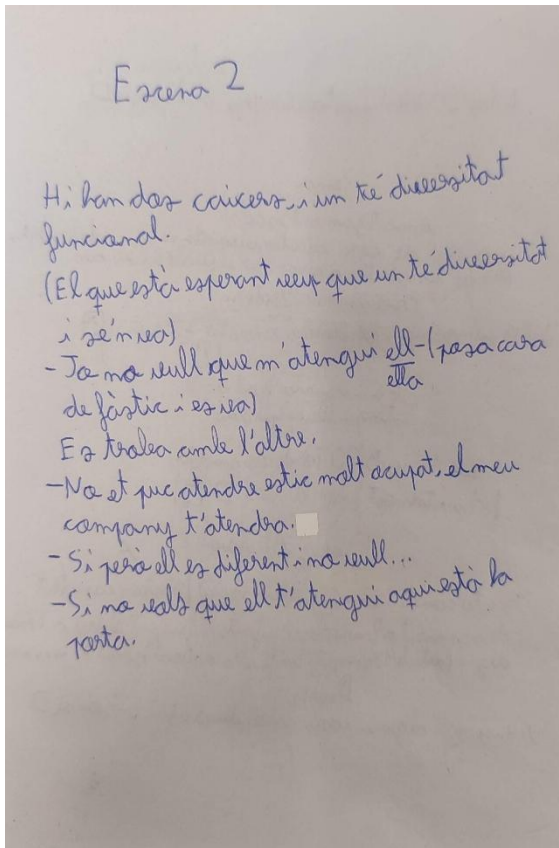 Escena 2
Hi han dos caixers, i un té diversitat
funcional.
(El que està esperant veu que un té diversitat
i sé'n va)
- Jo no vull que m'atengui ell - (posa cara
ella
de fàstic i es va)
Es troba amb l'altre.
- No et puc atendre estic molt ocupat, el meu
company t'atendra.
- Si però ell es diferent i no vull...
- Si no vols que ell t'atengui aqui està la
porta.